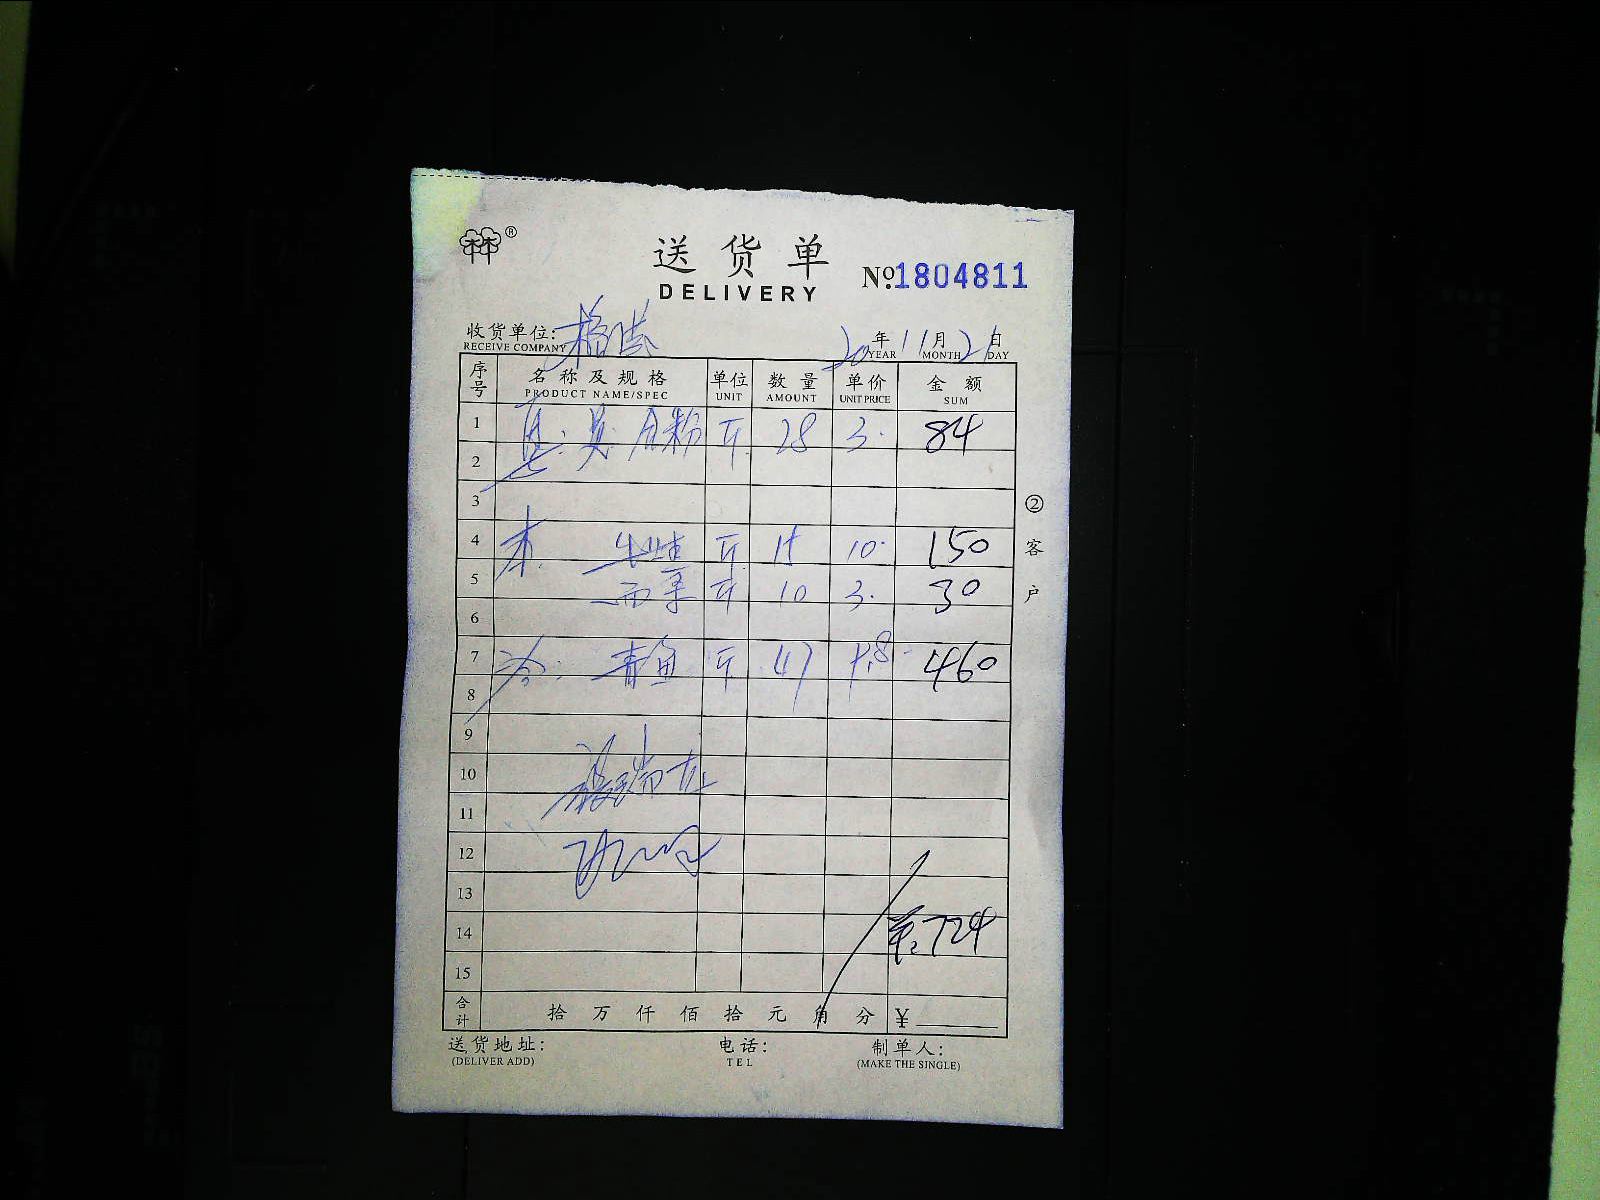 ®
送货单
DELIVERY
№1804811
收货单位:
RECEIVE COMPANY
20年11月21日
YEAR MONTH DAY
序号 名称及规格 单位 数量 单价 金额
PRODUCT NAME/SPEC UNIT AMOUNT UNIT PRICE SUM
1 斤 28 3. 84
2
3
4 斤 15 10. 150
5 西芹 斤 10 3. 30
6
7 青鱼 斤 47 460
8
9
10
11
12
13
14 724
15
合计 拾 万 仟 佰 拾 元 角 分 ¥
送货地址: 电话: 制单人:
(DELIVER ADD) TEL (MAKE THE SINGLE)
②客户